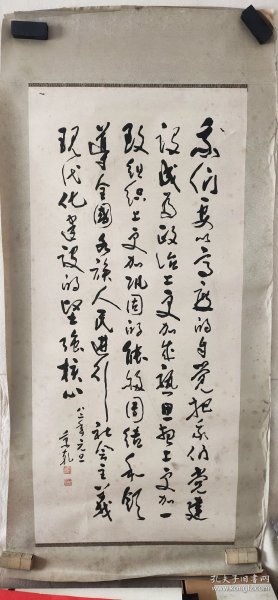 我们要以高度的自觉把我们党建
设成为政治上更加成熟思想上更加一
致组织上更加巩固的能够团结和领
导全国各族人民进行社会主义
现代化建设的坚强核心
元旦
孔夫子旧书网